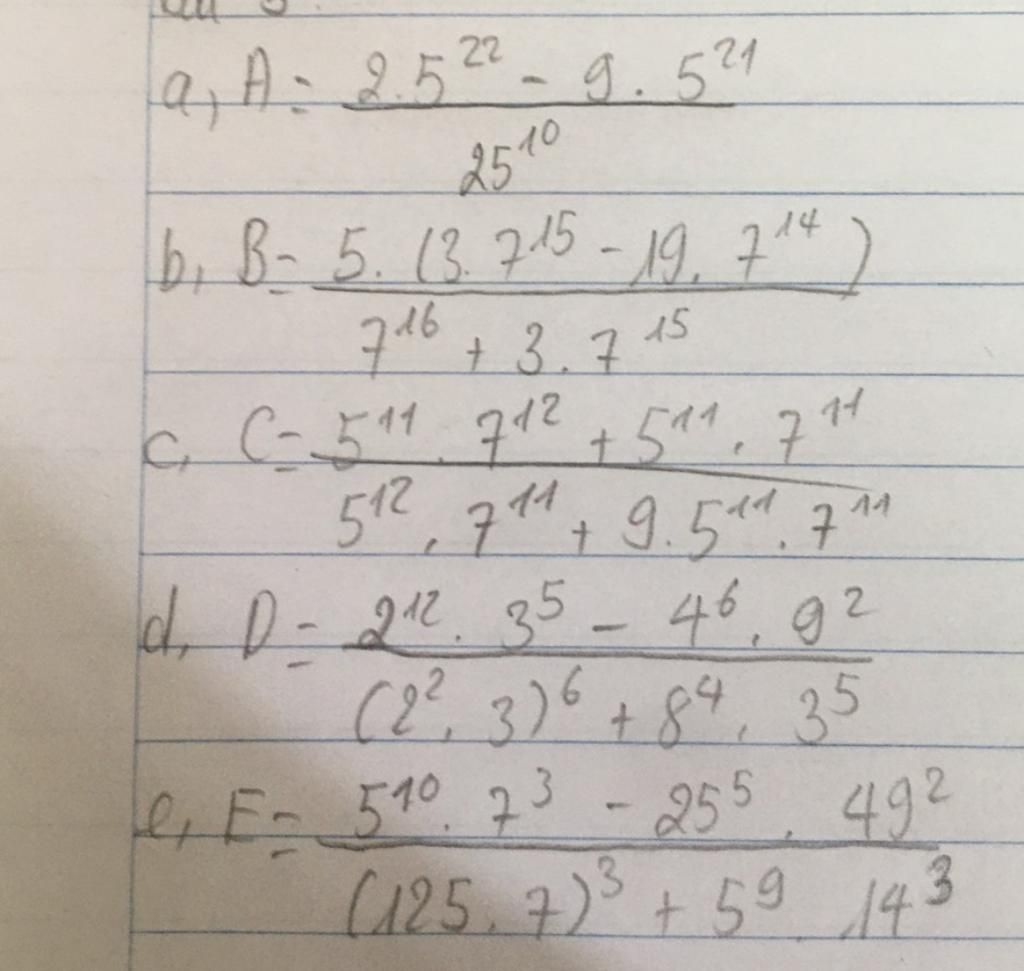 a, A = 2.5²² - 9.5²¹
25¹⁰
b, B = 5.(3.7¹⁵ - 19.7¹⁴)
7¹⁶ + 3.7¹⁵
c, C = 5¹¹.7¹² + 5¹¹.7¹¹
5¹².7¹¹ + 9.5¹¹.7¹¹
d, D = 2¹².3⁵ - 4⁶.9²
(2².3)⁶ + 8⁴.3⁵
e, E = 5¹⁰.7³ - 25⁵.49²
(125.7)³ + 5⁹.14³